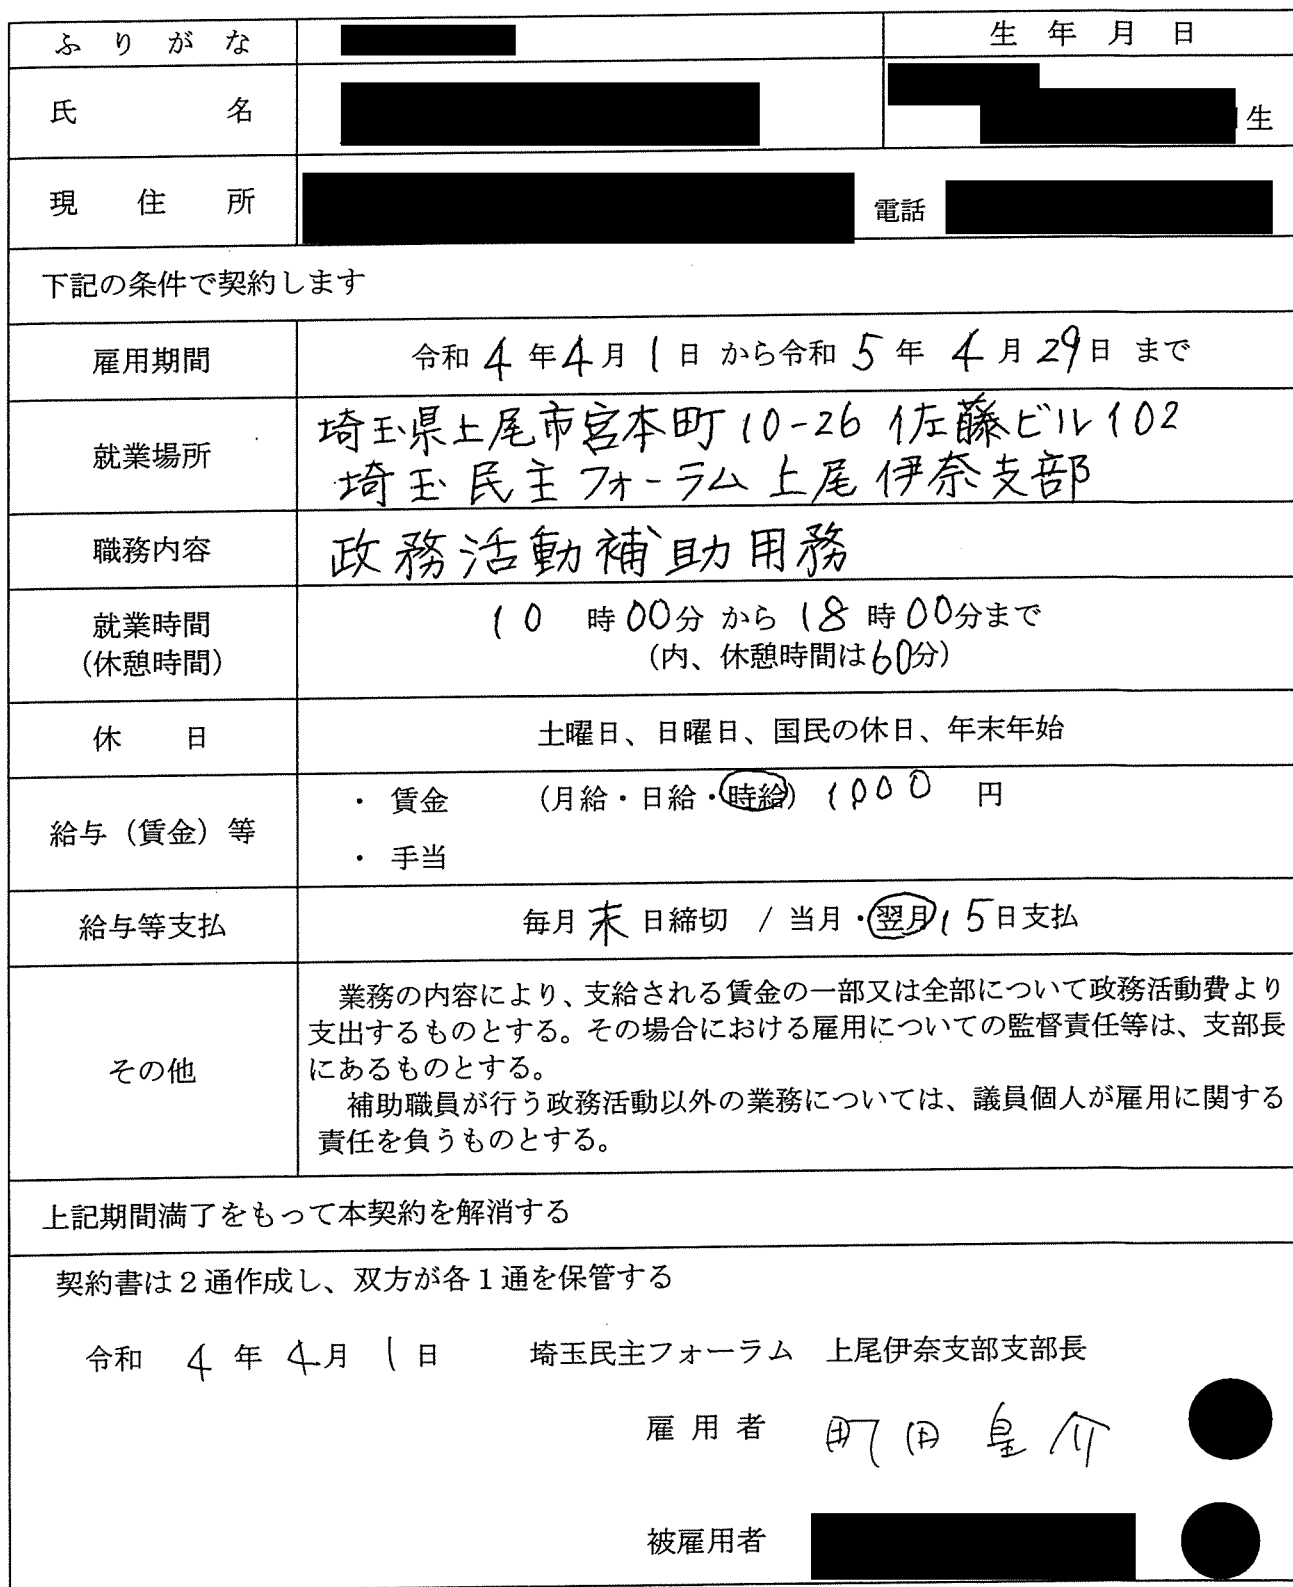 ふりがな
生年月日
氏名
生
現住所
電話
下記の条件で契約します
雇用期間
令和 4 年 4 月 1 日 から令和 5 年 4 月 29 日 まで
就業場所
埼玉県上尾市宮本町10-26 佐藤ビル102
埼玉民主フォーラム上尾伊奈支部
職務内容
政務活動補助用務
就業時間
(休憩時間)
10 時 00分 から 18 時 00分まで
(内、休憩時間は60分)
休日
土曜日、日曜日、国民の休日、年末年始
給与(賃金)等
・ 賃金 (月給・日給・時給) 1000 円
・ 手当
給与等支払
毎月 末 日締切 / 当月・翌月 15日支払
その他
業務の内容により、支給される賃金の一部又は全部について政務活動費より
支出するものとする。その場合における雇用についての監督責任等は、支部長
にあるものとする。
補助職員が行う政務活動以外の業務については、議員個人が雇用に関する
責任を負うものとする。
上記期間満了をもって本契約を解消する
契約書は2通作成し、双方が各1通を保管する
令和 4 年 4 月 1 日 埼玉民主フォーラム 上尾伊奈支部支部長
雇用者 町田皇介
被雇用者